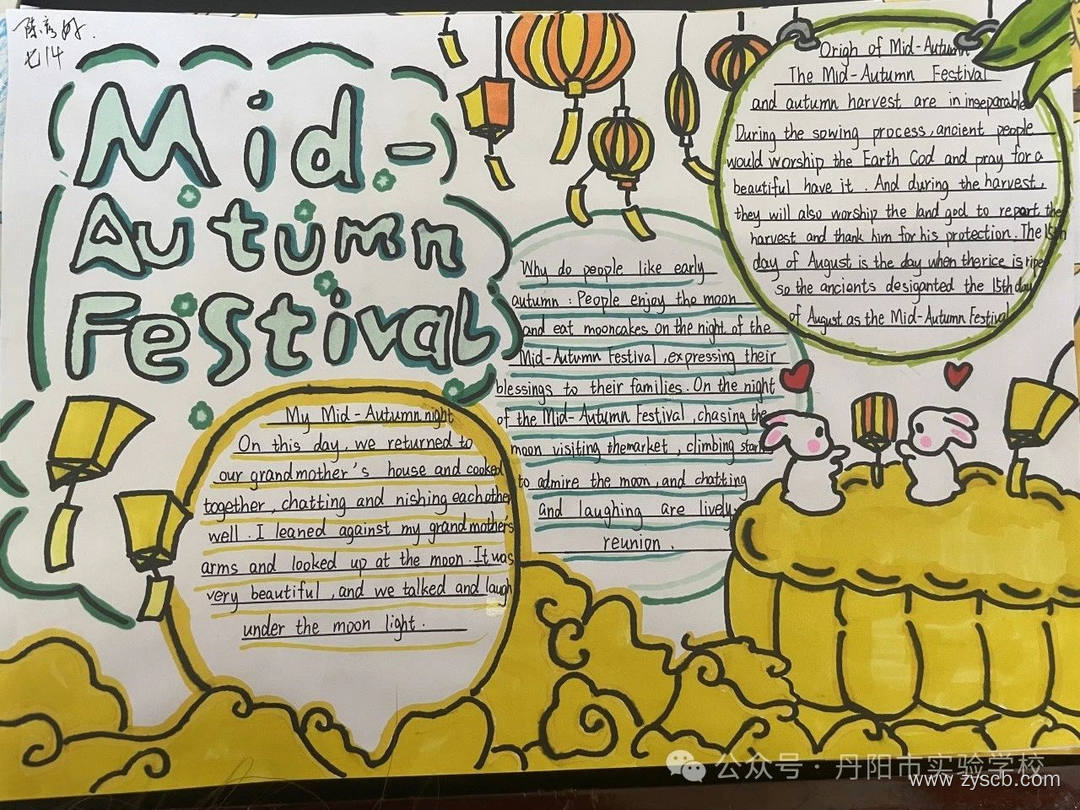 陈
七14
Mid-
Autumn
Festival
Origh of Mid-Autumn
The Mid-Autumn Festival
and autumn harvest are in inseparable
During the sowing process, ancient people
would worship the Earth God and pray for a
beautiful have it. And during the harvest,
they will also worship the land god to repart the
harvest and thank him for his protection. The 15th
day of August is the day when therice is ripe
so the ancients desiganted the 15th day
of August as the Mid-Autumn Festival
Why do people like early
autumn: People enjoy the moon
and eat mooncakes on the night of the
Mid-Autumn Festival, expressing their
blessings to their families. On the night
of the Mid-Autumn Festival, chasing the
moon visiting themarket, climbing
to admire the moon, and chatting
and laughing are lively
reunion.
My Mid-Autumn night
On this day, we returned to
our grandmother's house and cooked
together, chatting and nishing eachother
well. I leaned against my grandmothers
arms and looked up at the moon. It was
very beautiful, and we talked and laugh
under the moon light.
公众号·丹阳市实验学校
www.zyscb.com